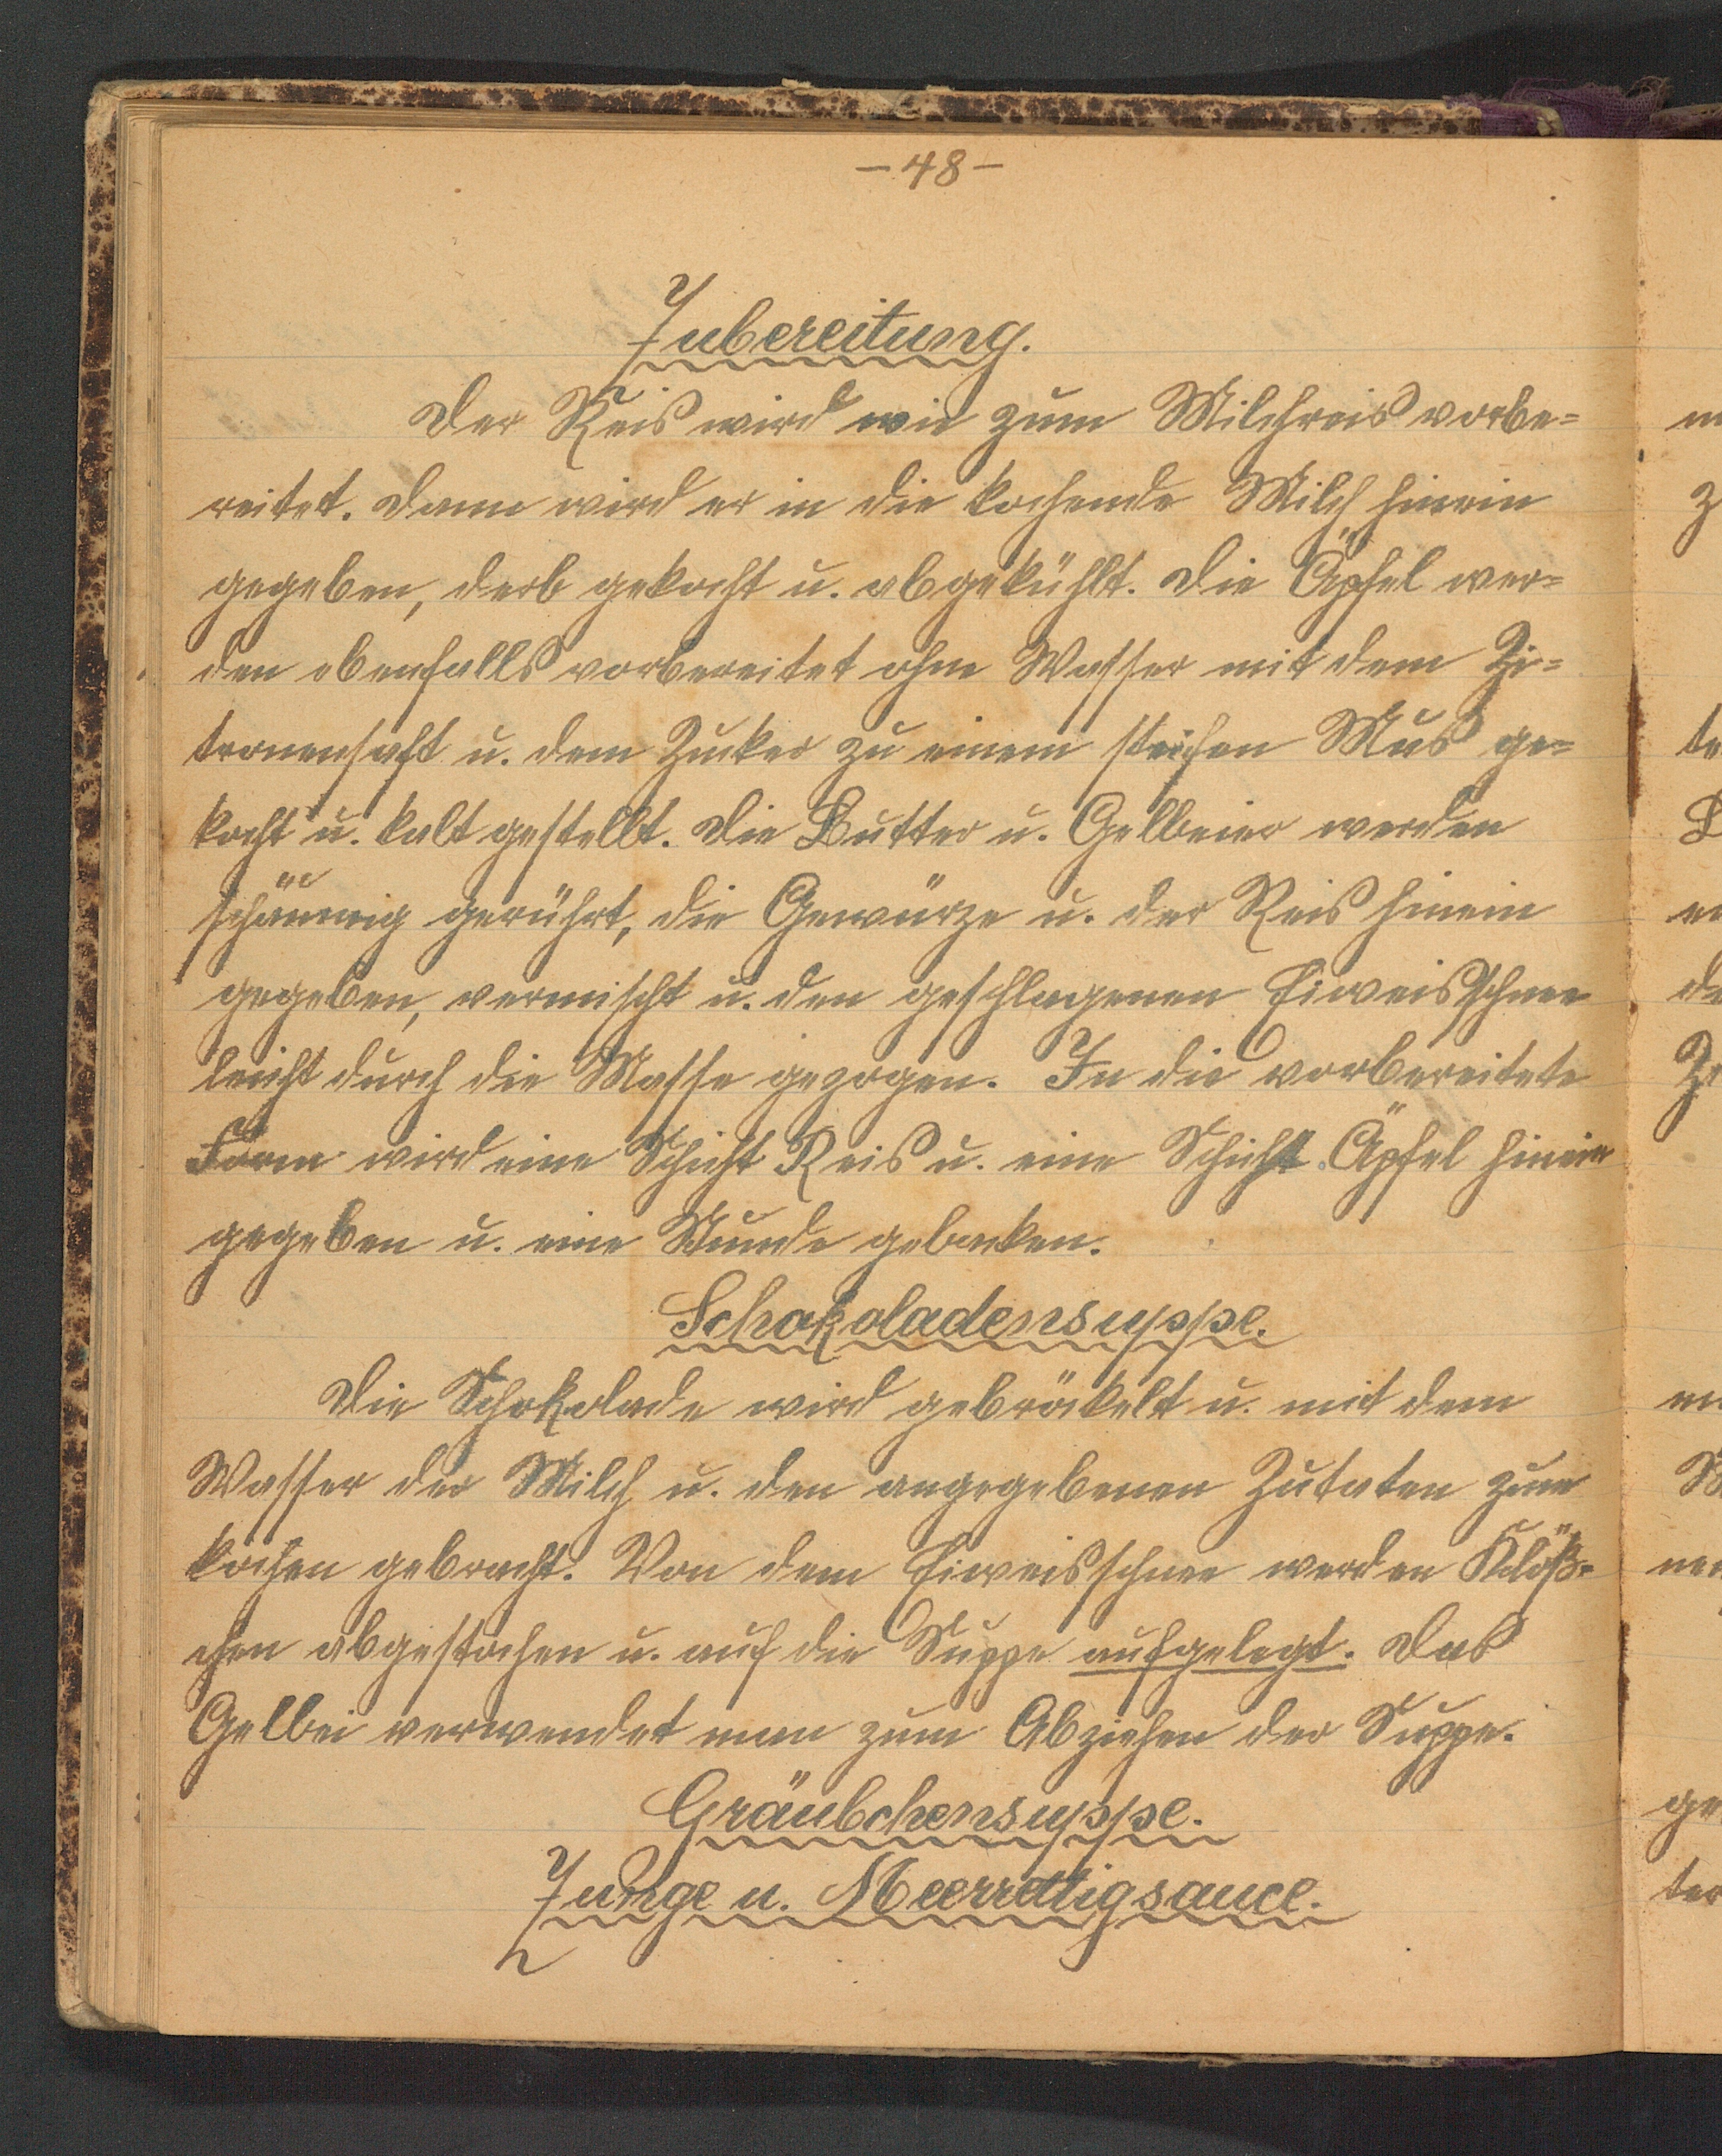 - 48 -
Zubereitung.
Der Reis wird wie zum Milchreis vorbe=
reitet. Dann wird er in die kochende Milch hinein
gegeben, derb gekocht u. abgekühlt. Die Äpfel wer=
den ebenfalls vorbereitet ohne Wasser mit dem Zi=
tronensaft u. dem Zucker zu einem steifen Mus ge=
kocht u. kalt gestellt. Die Butter u. Gelbeier werden
schäumig gerührt, die Gewürze u. der Reis hinein
gegeben, vermischt u. den geschlagenen Eiweisschnee
leicht durch die Masse gezogen. In die vorbereitete
Form wird eine Schicht Reis u. eine Schicht Äpfel hinein
gegeben u. eine Stunde gebacken.
Schokoladensuppe.
Die Schokolade wird gebröckelt u. mit dem
Wasser der Milch u. den angegebenen Zutaten zum
kochen gebracht. Von dem Eiweisschnee werden Klöß=
chen abgestochen u. auf die Suppe aufgelegt. Das
Gelbei verwendet man zum Abziehen der Suppe.
Gräubchensuppe.
Zunge u. Meerrettigsauce.